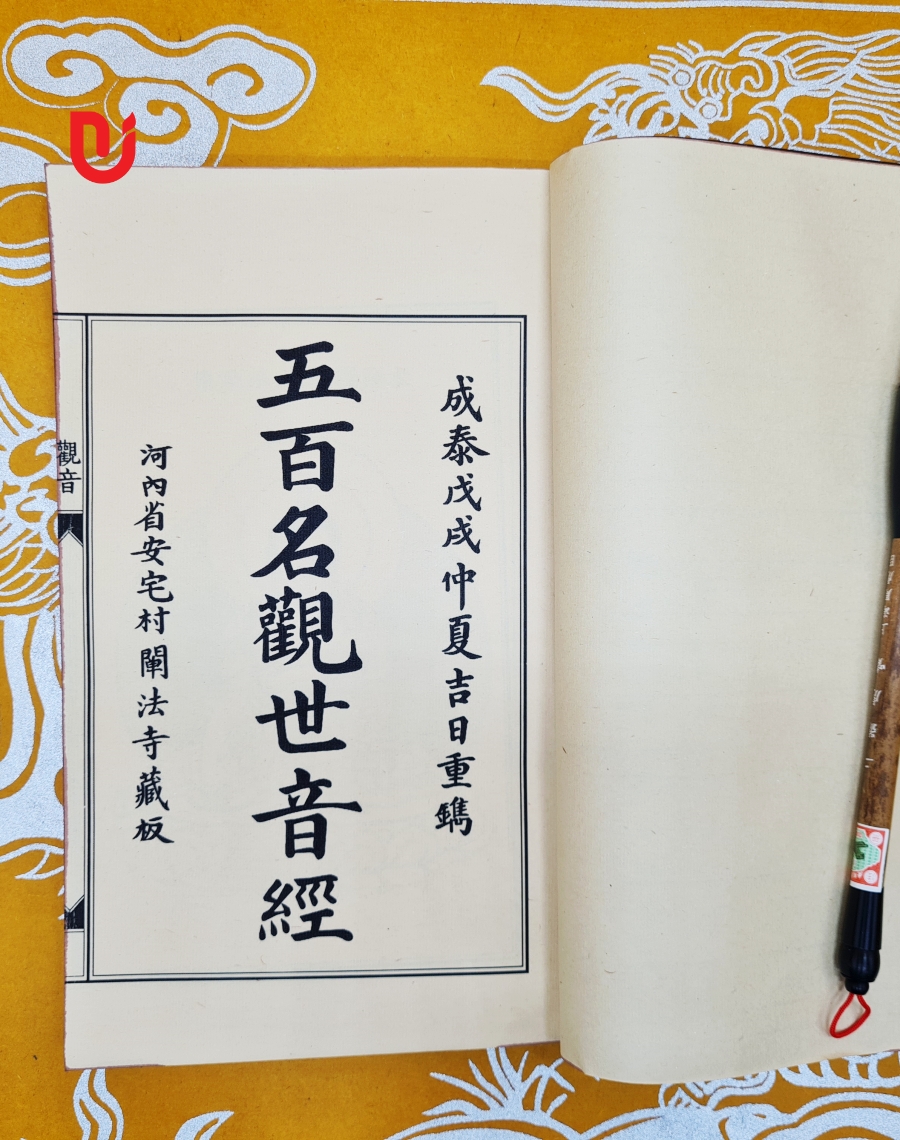 成泰戊戌仲夏吉日重鐫
五百名觀世音經
河內省安宅村闡法寺藏板
觀音